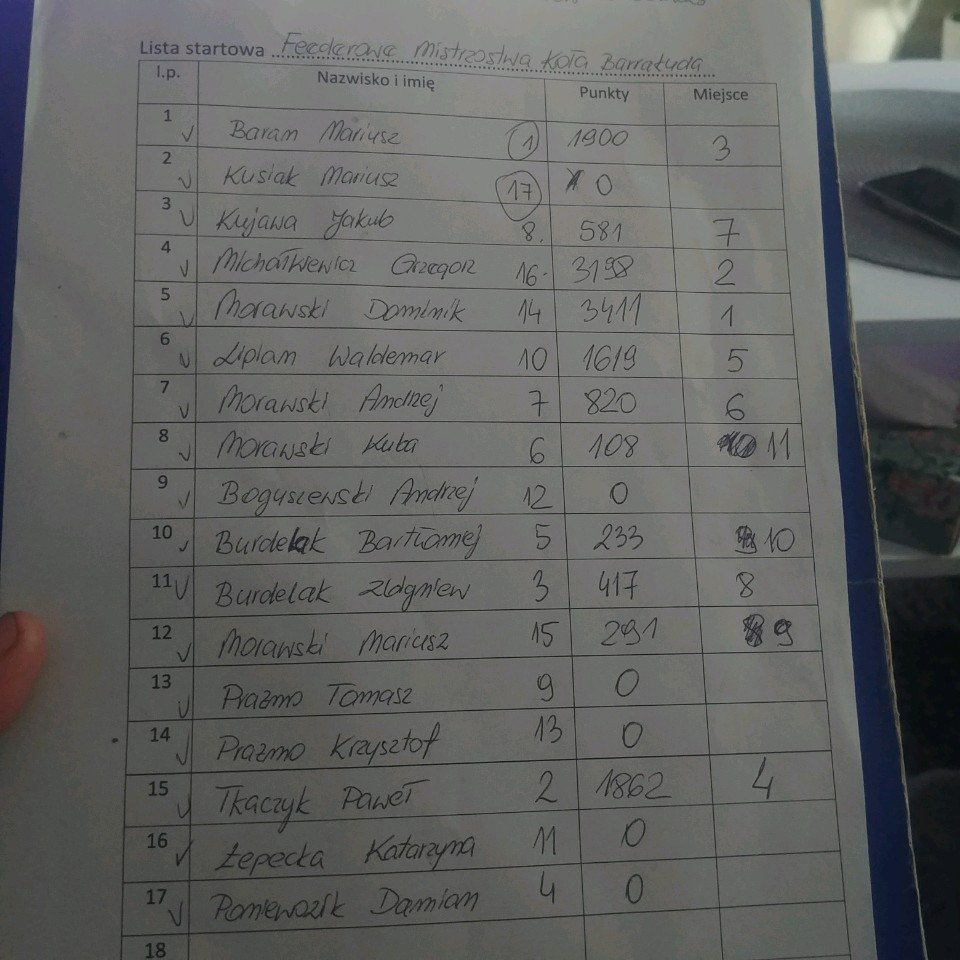 Lista startowa Feederowe Mistrzostwa Koła Barrakuda
l.p. Nazwisko i imię Punkty Miejsce
1 Baran Mariusz 1 1900 3
2 Kusiak Mariusz 17 0
3 Kujawa Jakub 8. 581 7
4 Michałkiewicz Grzegorz 16. 3198 2
5 Morawski Dominik 14 3411 1
6 Lipian Waldemar 10 1619 5
7 Morawski Andrzej 7 820 6
8 Morawski Kuba 6 108 11
9 Boguszewski Andrzej 12 0
10 Burdelak Bartłomiej 5 233 10
11 Burdelak Zbigniew 3 417 8
12 Morawski Mariusz 15 291 9
13 Prażmo Tomasz 9 0
14 Prażmo Krzysztof 13 0
15 Tkaczyk Paweł 2 1862 4
16 Łepecka Katarzyna 11 0
17 Poniewozik Damian 4 0
18